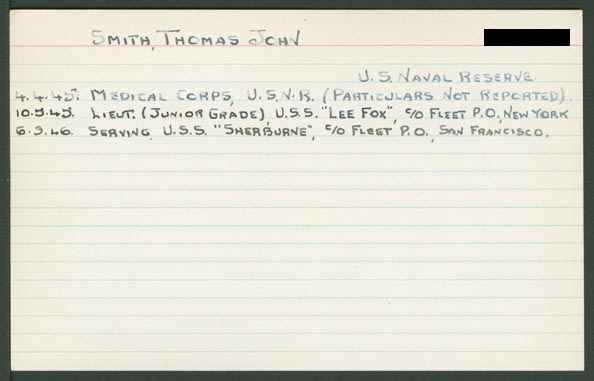 SMITH, THOMAS JOHN
U.S. NAVAL RESERVE.
4.4.45. MEDICAL CORPS, U.S.N.R. (PARTICULARS NOT REPORTED).
10.5.45. LIEUT. (JUNIOR GRADE), U.S.S. "LEE FOX", C/O FLEET P.O., NEW YORK
6.3.46. SERVING, U.S.S. "SHERBURNE", C/O FLEET P.O., SAN FRANCISCO.